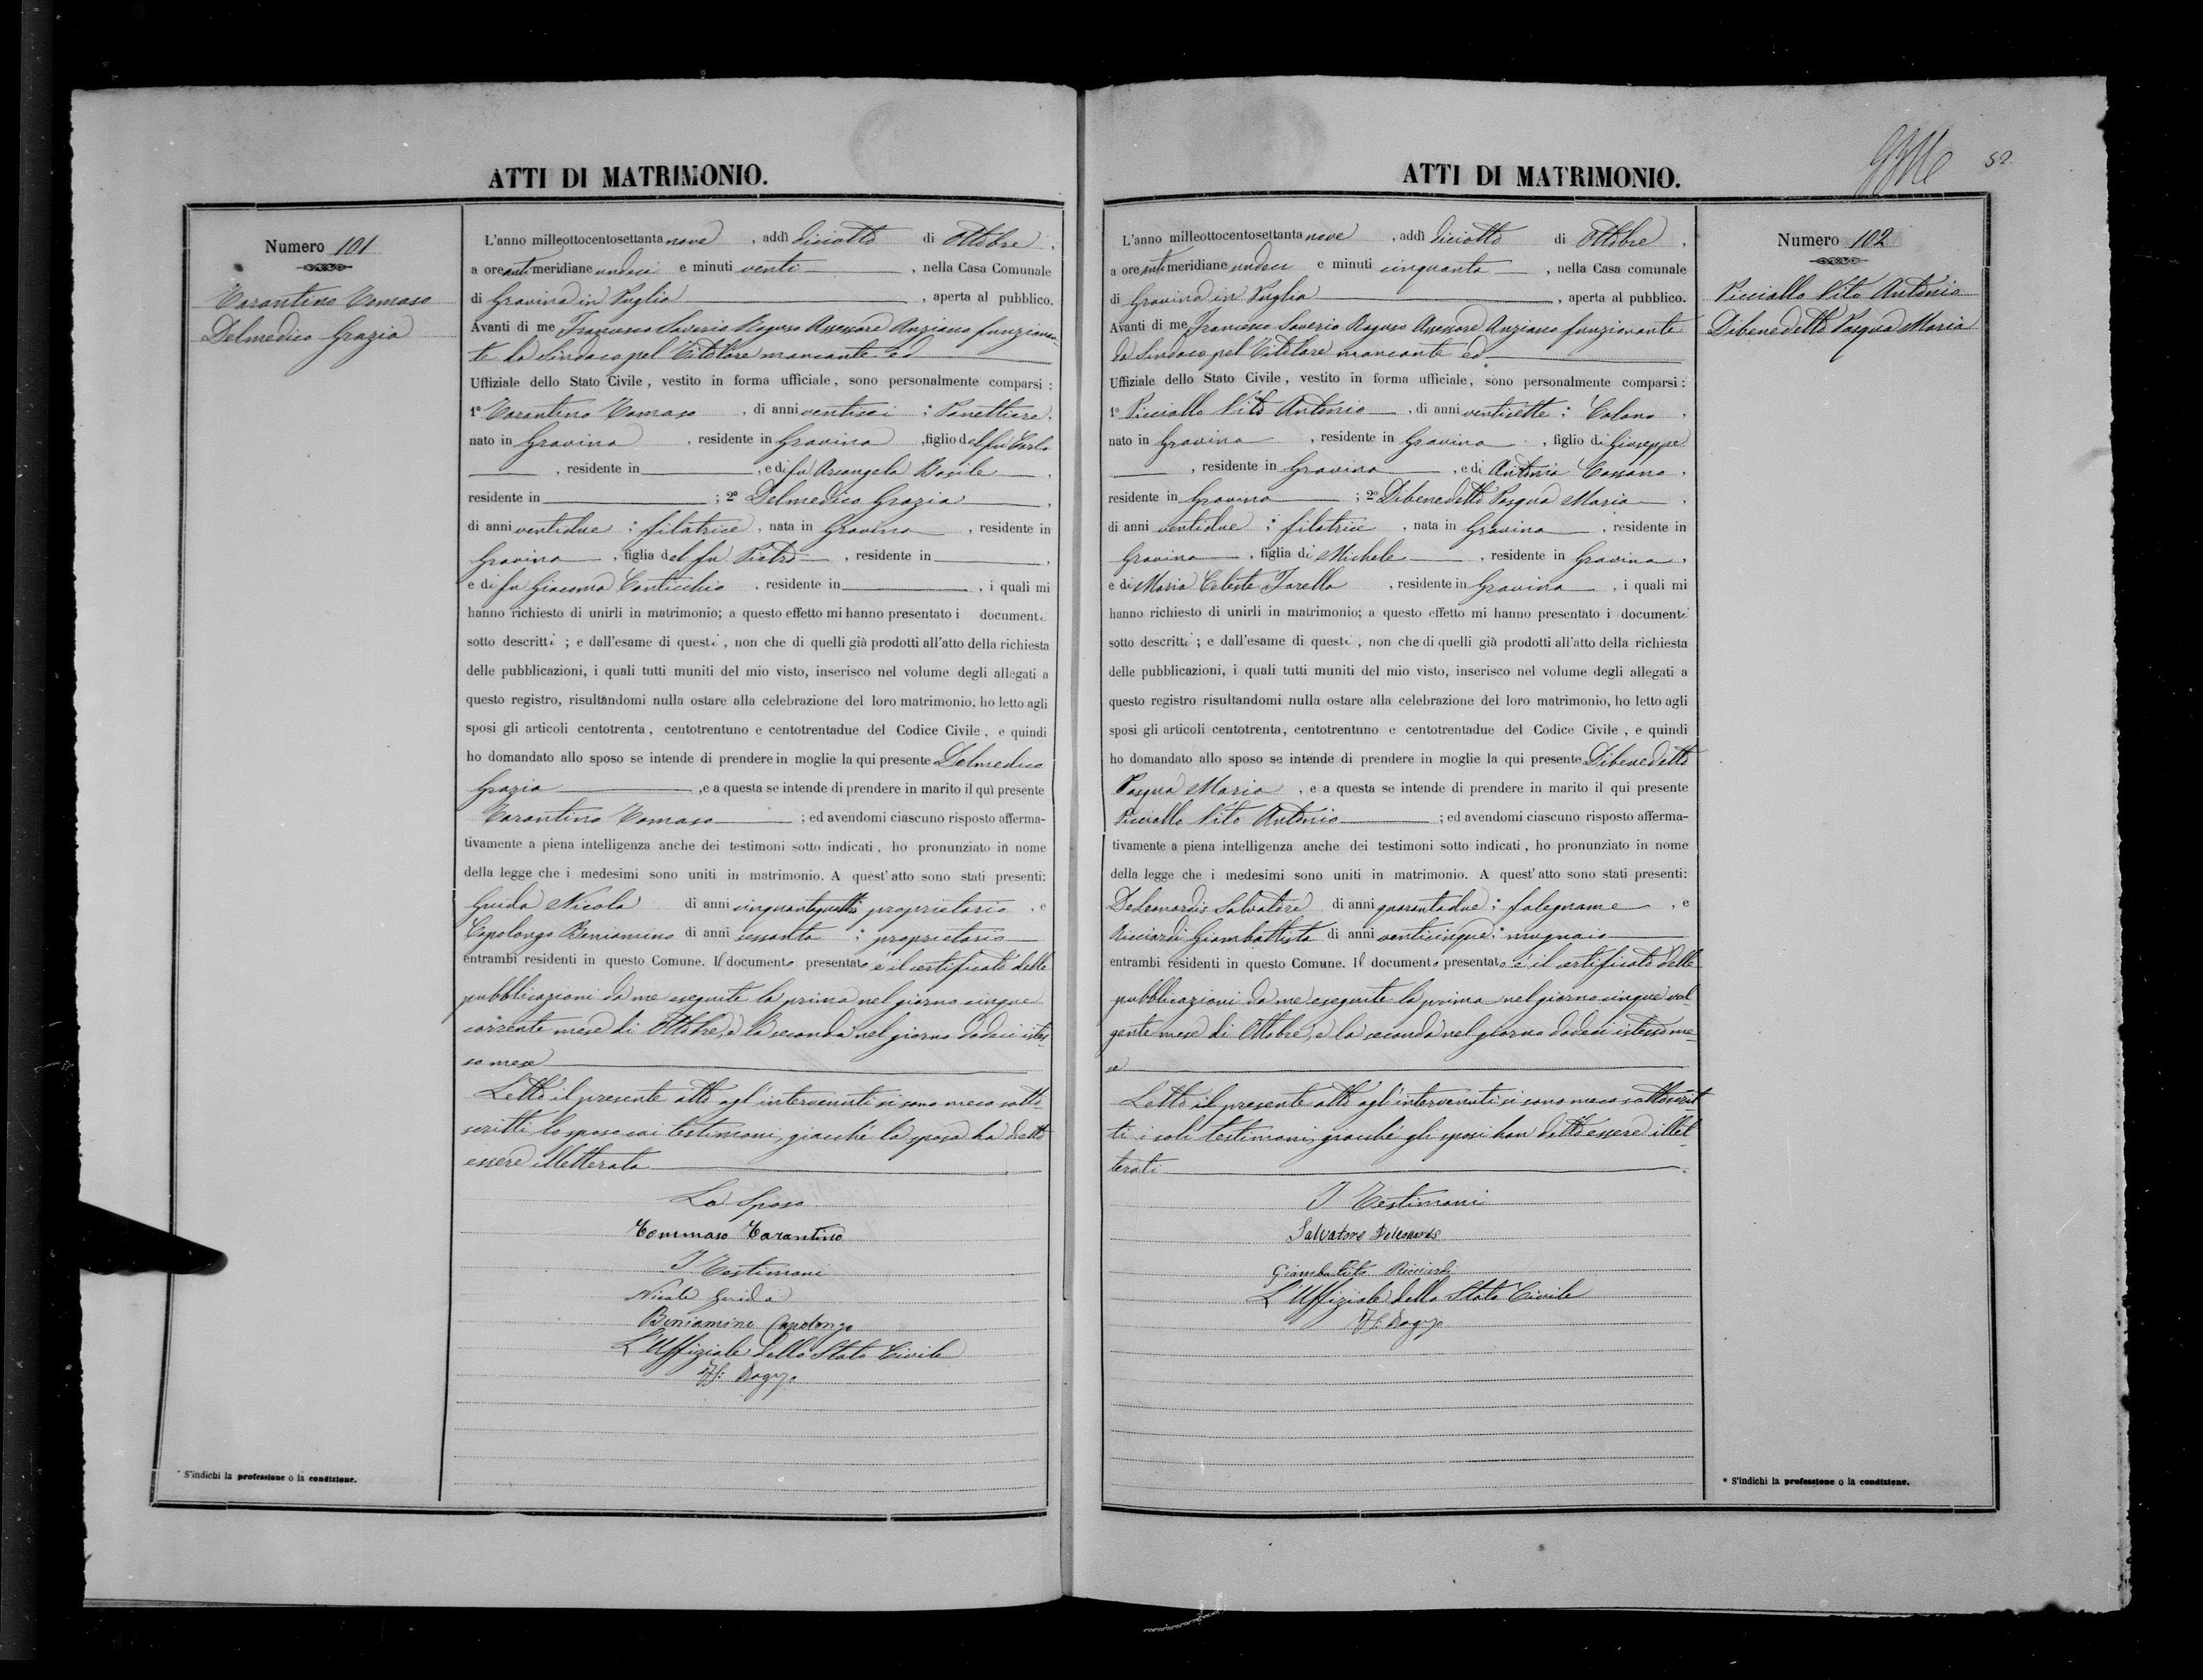 ATTI DI MATRIMONIO.
Numero 101
Tarantino Tomaso
Delmedico Grazia
L'anno milleottocentosettanta nove, addì diciotto di Ottobre,
a ore anti meridiane undeci e minuti venti, nella Casa Comunale
di Gravina in Puglia, aperta al pubblico.
Avanti di me Francesco Saverio Raguso Assessore Anziano funzionan-
te da Sindaco pel Titolare mancante ed
Uffiziale dello Stato Civile, vestito in forma ufficiale, sono personalmente comparsi:
1º Tarantino Tomaso, di anni ventisei; Panettiere,
nato in Gravina, residente in Gravina, figlio del fu Carlo
, residente in , e di fu Arcangela Basile,
residente in ; 2º Delmedico Grazia,
di anni ventidue; filatrice, nata in Gravina, residente in
Gravina, figlia del fu Pietro, residente in ,
e di fu Giacoma Conticchio, residente in , i quali mi
hanno richiesto di unirli in matrimonio; a questo effetto mi hanno presentato i documenti
sotto descritti; e dall'esame di questi, non che di quelli già prodotti all'atto della richiesta
delle pubblicazioni, i quali tutti muniti del mio visto, inserisco nel volume degli allegati a
questo registro, risultandomi nulla ostare alla celebrazione del loro matrimonio, ho letto agli
sposi gli articoli centotrenta, centotrentuno e centotrentadue del Codice Civile, e quindi
ho domandato allo sposo se intende di prendere in moglie la qui presente Delmedico
Grazia, e a questa se intende di prendere in marito il qui presente
Tarantino Tomaso; ed avendomi ciascuno risposto afferma-
tivamente a piena intelligenza anche dei testimoni sotto indicati, ho pronunziato in nome
della legge che i medesimi sono uniti in matrimonio. A quest'atto sono stati presenti:
Guida Nicola di anni cinquantaquattro proprietario, e
Capolongo Beniamino di anni sessanta; proprietario
entrambi residenti in questo Comune. Il documento presentato è il certificato delle
pubblicazioni da me eseguite la prima nel giorno cinque
corrente mese di Ottobre, e la seconda nel giorno dodeci istes-
so mese
Letto il presente atto agl'intervenuti si sono meco sotto-
scritti lo sposo coi testimoni, giacchè la sposa ha detto
essere illetterata
Lo Sposo
Tommaso Tarantino
I Testimoni
Nicola Guida
Beniamino Capolongo
L'Uffiziale dello Stato Civile
F. S. Raguso
* S'indichi la professione o la condizione.
ATTI DI MATRIMONIO.
52
L'anno milleottocentosettanta nove, addì diciotto di Ottobre,
a ore anti meridiane undeci e minuti cinquanta, nella Casa comunale
di Gravina in Puglia, aperta al pubblico.
Avanti di me Francesco Saverio Raguso Assessore Anziano funzionante
da Sindaco pel Titolare mancante ed
Uffiziale dello Stato Civile, vestito in forma ufficiale, sono personalmente comparsi:
1º Picciallo Vito Antonio, di anni ventisette; Colono,
nato in Gravina, residente in Gravina, figlio di Giuseppe
, residente in Gravina, e di Antonia Cassano,
residente in Gravina; 2º Dibenedetto Pasqua Maria,
di anni ventidue; filatrice, nata in Gravina, residente in
Gravina, figlia di Michele, residente in Gravina,
e di Maria Celeste Tarella, residente in Gravina, i quali mi
hanno richiesto di unirli in matrimonio; a questo effetto mi hanno presentato i documenti
sotto descritti; e dall'esame di questi, non che di quelli già prodotti all'atto della richiesta
delle pubblicazioni, i quali tutti muniti del mio visto, inserisco nel volume degli allegati a
questo registro risultandomi nulla ostare alla celebrazione del loro matrimonio, ho letto agli
sposi gli articoli centotrenta, centotrentuno e centotrentadue del Codice Civile, e quindi
ho domandato allo sposo se intende di prendere in moglie la qui presente Dibenedetto
Pasqua Maria, e a questa se intende di prendere in marito il qui presente
Picciallo Vito Antonio; ed avendomi ciascuno risposto afferma-
tivamente a piena intelligenza anche dei testimoni sotto indicati, ho pronunziato in nome
della legge che i medesimi sono uniti in matrimonio. A quest'atto sono stati presenti:
Deleonardis Salvatore di anni quarantadue; falegname, e
Ricciardi Giambattista di anni venticinque; mugnaio
entrambi residenti in questo Comune. Il documento presentato è il certificato delle
pubblicazioni da me eseguite la prima nel giorno cinque vol-
gente mese di Ottobre, e la seconda nel giorno dodeci istesso me-
se
Letto il presente atto agl'intervenuti si sono meco sottoscrit-
ti i soli testimoni, giacchè gli sposi han detto essere illet-
terati
I Testimoni
Salvatore Deleonardis
Giambattista Ricciardi
L'Uffiziale dello Stato Civile
F. S. Raguso
Numero 102
Picciallo Vito Antonio
Dibenedetto Pasqua Maria
* S'indichi la professione o la condizione.